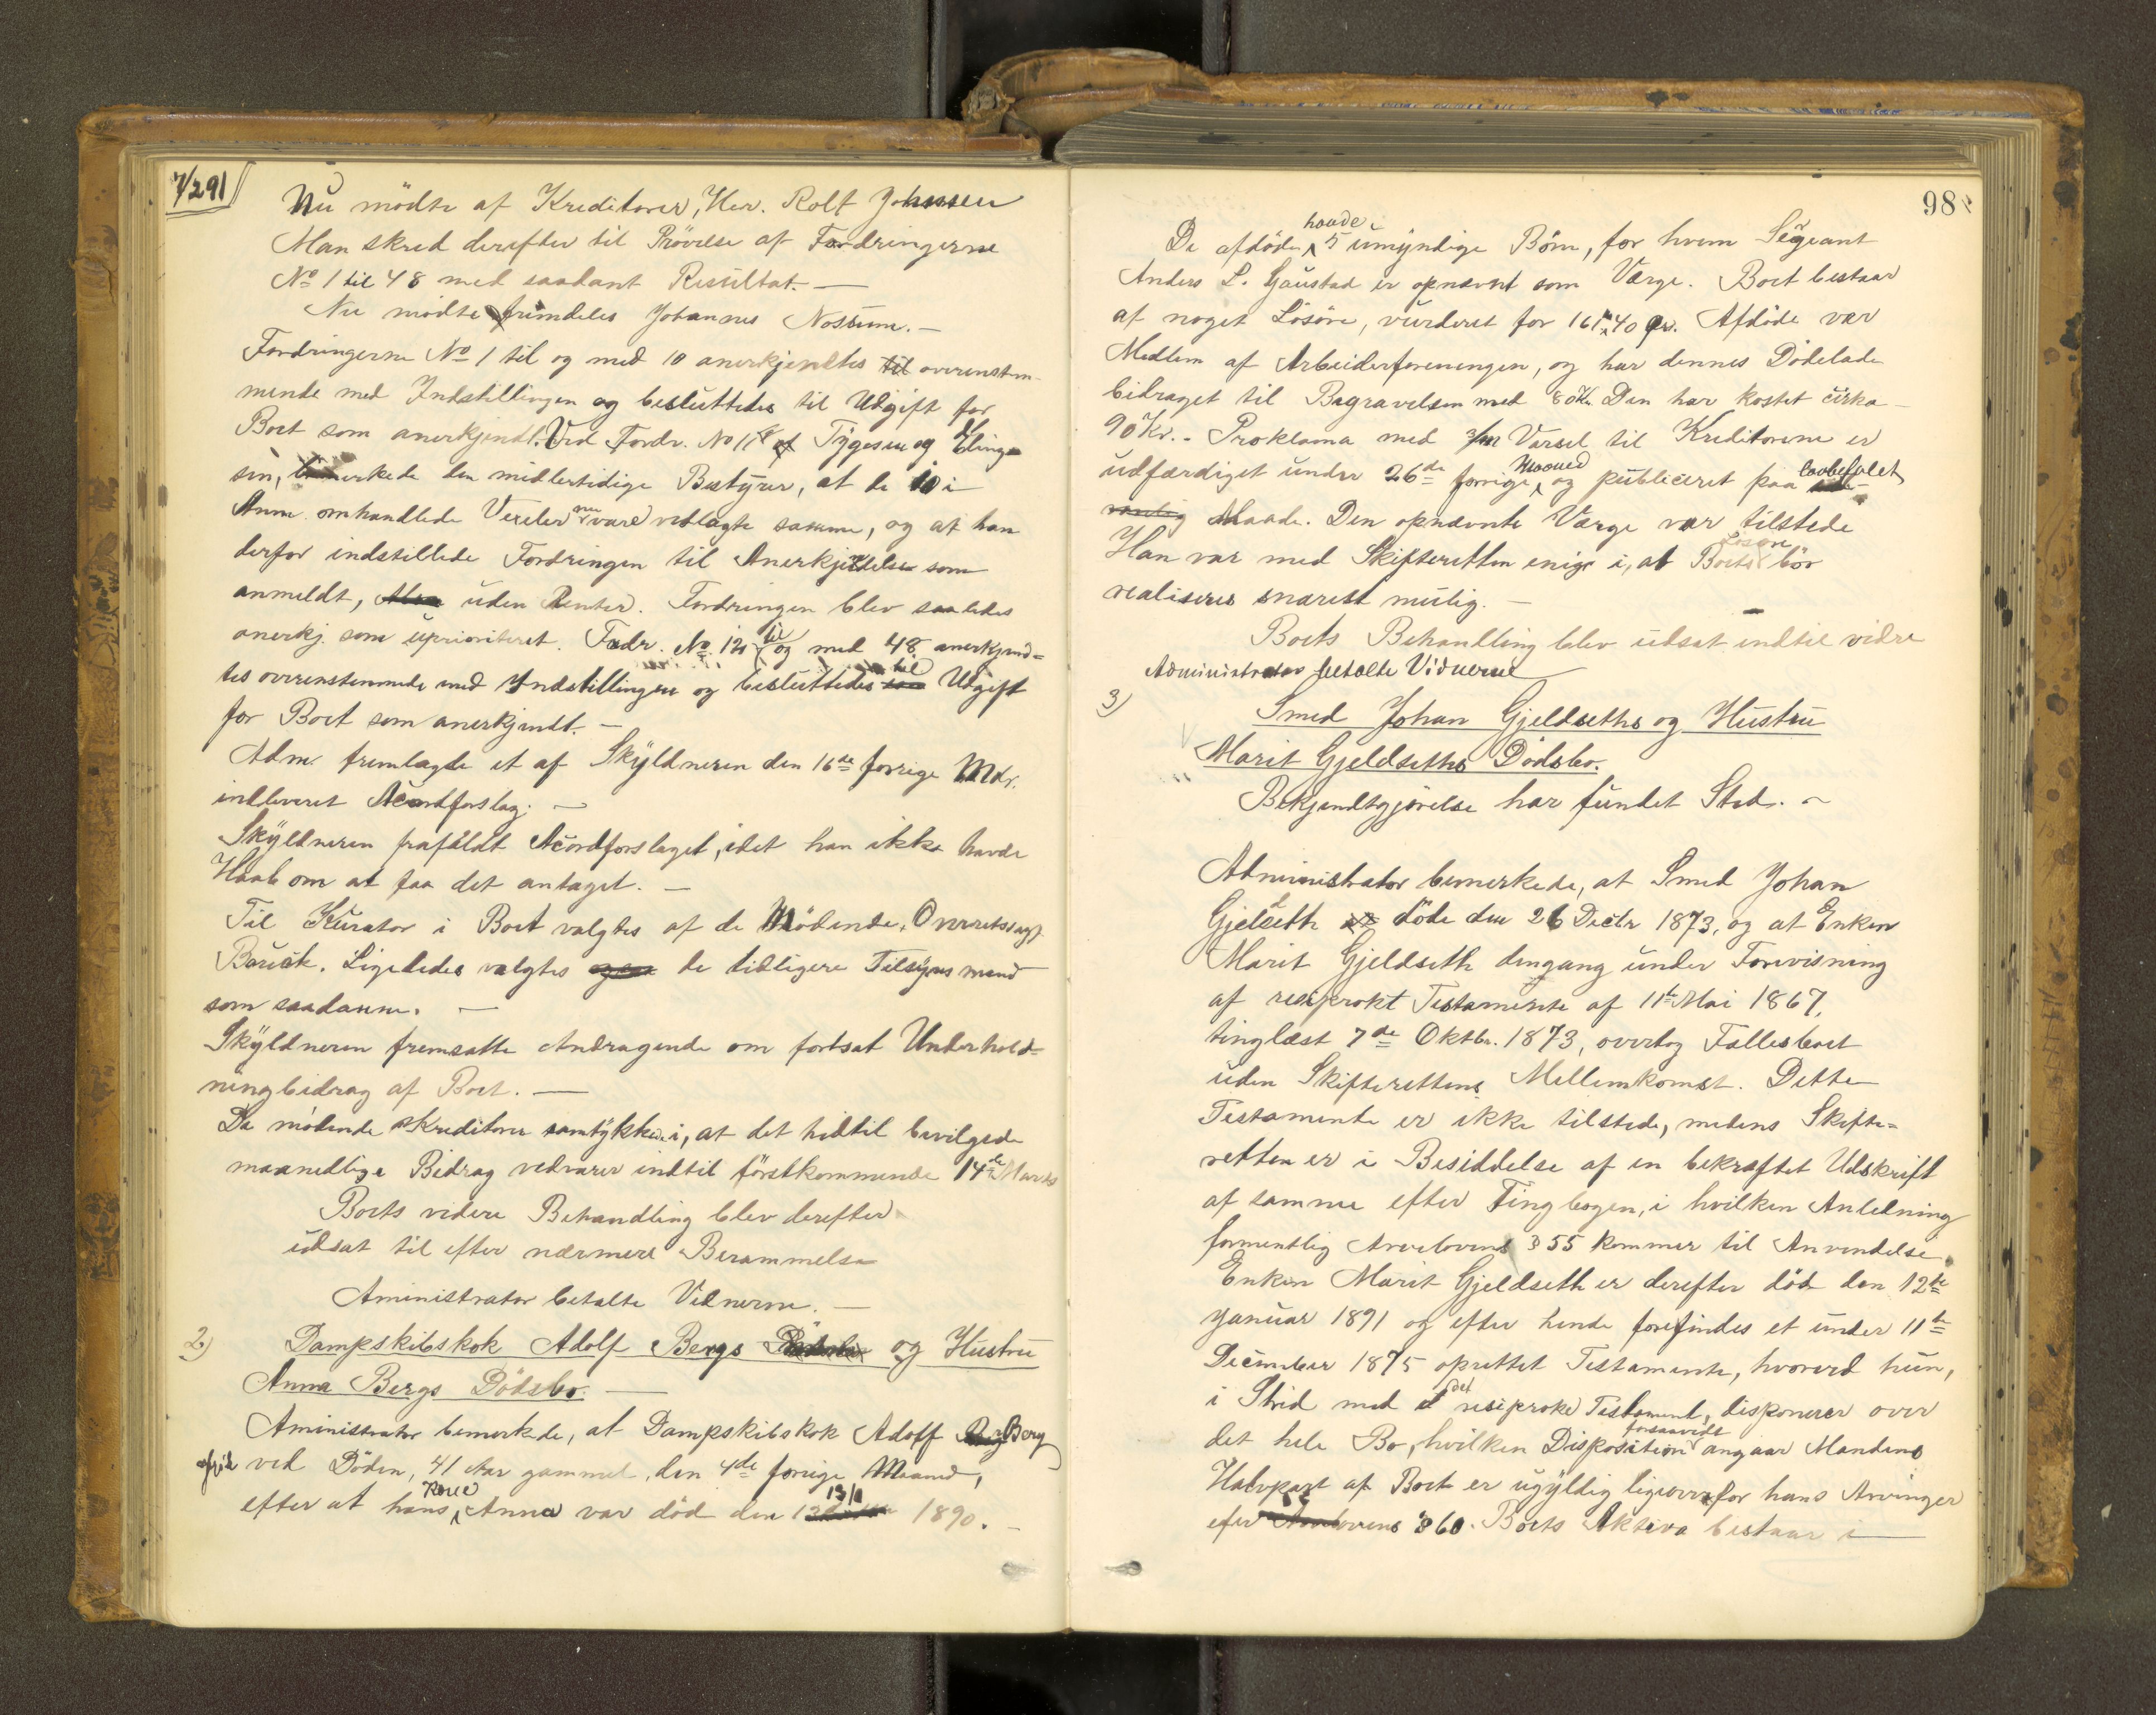 7/2 91
Nu mødte af Kreditorer, Her. Rolf Johnsen
Man skred derefter til Prövelse af Fordringerne
No 1 til 48 med saadant Resultat. —
Nu mødte fremdeles Johannes Nossum. —
Fordringerne No 1 til og med 10 anerkjendtes til overenstem-
mende med Indstillingen og besluttedes til Udgift for
Boet som anerkjendt. Ved Fordr. No 11 af Tygesen og Eling-
sen, bemerkede den midlertidige Bestyrer, at de 10 i
Anm. omhandlede Vexeler nu vare vedlagte samme, og at han
derfor indstillede Fordringen til Anerkjendelse som
anmeldt, uden Renter. Fordringen blev saaledes
anerkj. som uprioriteret. Fodr. No. 12 til og med 48 anerkjend-
tes overenstemmende med Indstillingen og besluttedes til Udgift
for Boet som anerkjendt. —
Adm. fremlagde et af Skyldneren den 16de forrige Mdr.
indleveret Acordforslag. —
Skyldneren frafaldt Acordforslaget, idet han ikke havde
Haab om at faa det antaget. —
Til Kurator i Boet valgtes af de Mödende, Overretssagf.
Bauck. Ligeledes valgtes de tidligere Tilsynsmænd
som saadanne. —
Skyldneren fremsatte Andragende om fortsat Underhold-
ningbidrag af Boet. —
De mödende Kreditorer samtykkede i, at det hidtil bevilgede
maanedlige Bidrag vedvarer indtil förstkommende 14de Marts
Boets videre Behandling blev derefter
udsat til efter nærmere Berammelse
Aministrator betalte Vidnerne. —
2) Dampskibskok Adolf Bergs Dödsbo og Hustru
Anna Bergs Dödsbo. —
Aministrator bemerkede, at Dampskibskok Adolf Berg
afgik ved Döden, 41 Aar gammel, den 4de forrige Maaned,
efter at hans Kone Anna var död den 13/10 1890. —
98
De afdöde havde 5 umyndige Börn, for hvem Segeant
Anders L. Gaustad er opnævnt som Værge. Boet bestaar
af noget Lösöre, vurderet for 161 kr 40 Ör. Afdöde var
Medlem af Arbeiderforeningen, og har dennes Dödelade
bidraget til Begravelsen med 80 Kr. Den har kostet cirka
90 Kr. - Proklama med 3/m Varsel til Kreditorerne er
udfærdiget under 26de forrige Maaned og publiceret paa lovbefalet
vanlig Maade. Den opnævnte Værge var tilstede
Han var med Skifteretten enige i, at Boets Lösöre bör
realiseres snarest mulig. —
Boets Behandling blev udsat indtil vidre
Administrator betalte Vidnerne
3) Smed Johan Gjeldseths og Hustru
Marit Gjeldseths Dödsbo.
Bekjendtgjörelse har fundet Sted. —
Administrator bemerkede, at Smed Johan
Gjeldseth döde den 26 Decbr 1873, og at Enken
Marit Gjeldseth dengang under Forevisning
af resiprokt Testamente af 11te Mai 1867,
tinglæst 7de Oktbr. 1873, overtog Fællesboet
uden Skifterettens Mellemkomst. Dette
Testamente er ikke tilstede, medens Skifte-
retten er i Besiddelse af en bekræftet Udskrift
af samme efter Tingbogen, i hvilken Anledning
formentlig Arvelovens § 55 kommer til Anvendelse
Enken Marit Gjeldseth er derefter död den 12te
Januar 1891 og efter hende forefindes et under 11te
December 1875 oprettet Testamente, hvorved hun,
i Strid med det resiproke Testament, disponerer over
det hele Bo, hvilken Disposition forsaavidt angaar Mandens
Halvpart af Boet er ugyldig ligeoverfor hans Arvinger
efter Arvelovens § 60. Boets Aktiva bestaar i